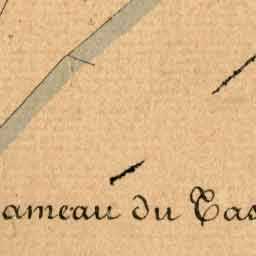 ameau du Cas